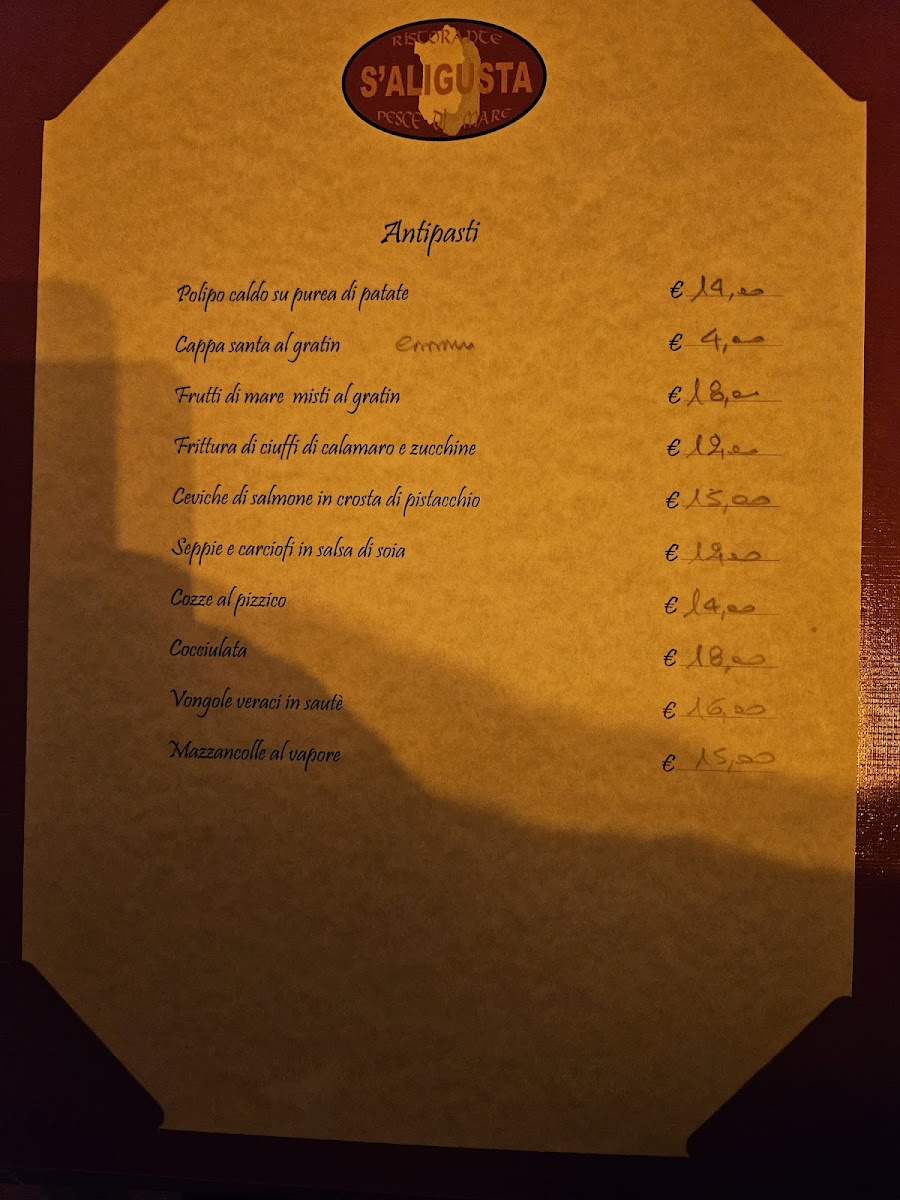 RISTORANTE
S'ALIGUSTA
PESCE DI MARE
Antipasti
Polipo caldo su purea di patate € 14,00
Cappa santa al gratin € 4,00
Frutti di mare misti al gratin € 18,00
Frittura di ciuffi di calamaro e zucchine € 12,00
Ceviche di salmone in crosta di pistacchio € 15,00
Seppie e carciofi in salsa di soia € 12,00
Cozze al pizzico € 14,00
Cocciulata € 18,00
Vongole veraci in sautè € 16,00
Mazzancolle al vapore € 15,00